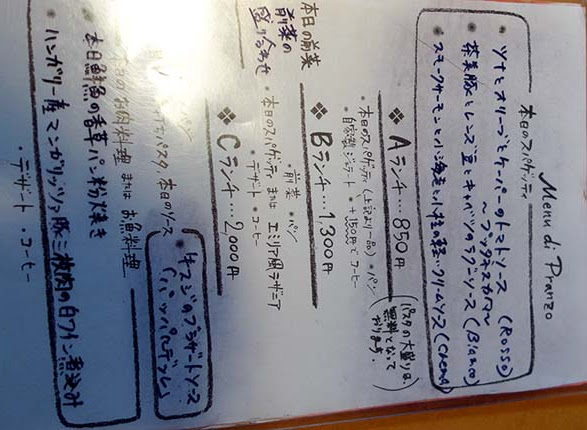 Menu di Pranzo
本日のスパゲッティ
ツナとオリーブとケーパーのトマトソース (Rosso)
～プッタネスカ風～
茶美豚とレンズ豆とキャベツのラグーソース (Bianco)
スモークサーモンと小海老の軽いクリームソース (Crema)
❖ Aランチ…850円
・本日のスパゲッティ(上記より一品) ・パン
・自家製ジェラート ・+150円でコーヒー
(パスタの大盛りは、無料となっております。)
❖ Bランチ…1,300円
・前菜 ・パン
・本日のスパゲッティ または エミリア風ラザニア
・デザート ・コーヒー
本日の前菜
前菜の
盛り合わせ
❖ Cランチ…2,000円
パン
パスタ、本日のソース
本日のお肉料理 または お魚料理
・デザート ・コーヒー
ソース
「パッパルデッレ」
本日鮮魚の香草パン粉焼き
ハンガリー産マンガリッツァ豚三枚肉の白ワイン煮込み